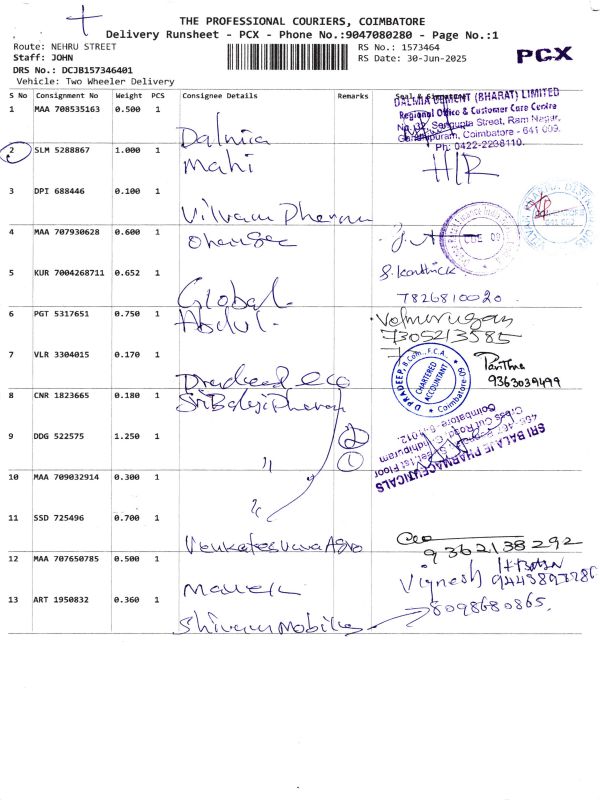 THE PROFESSIONAL COURIERS, COIMBATORE
Delivery Runsheet - PCX - Phone No.:9047080280 - Page No.:1
Route: NEHRU STREET
RS No.: 1573464
Staff: JOHN
RS Date: 30-Jun-2025
PCX
DRS No.: DCJB157346401
Vehicle: Two Wheeler Delivery
S No Consignment No Weight PCS Consignee Details Remarks Seal & Signature
1 MAA 708535163 0.500 1 Dalmia
DALMIA CEMENT (BHARAT) LIMITED
Regional Office & Customer Care Centre
Street, Ram Nagar,
Coimbatore - 641 009.
Ph: 0422-2238110.
2 SLM 5288867 1.000 1 Mahi
3 DPI 688446 0.100 1 Vilvam Pharma
4 MAA 707930628 0.600 1
5 KUR 7004268711 0.652 1 Global
S. Karthick
7826810020
6 PGT 5317651 0.750 1 Abdul
Velmurugan
7305213585
7 VLR 3304015 0.170 1 Pradeed &co
D PRADEEP, B.Com., F.C.A.
CHARTERED ACCOUNTANT
Coimbatore-09
9363039499
8 CNR 1823665 0.180 1 Sri Balaji Pharma
9 DDG 522575 1.250 1 "
2
1
SRI BALAJE PHARMACEUTICALS
1st Floor
Cross Cut Road, Gandhipuram
Coimbatore - 641 012.
10 MAA 709032914 0.300 1 "
11 SSD 725496 0.700 1 Venkateswara Agro
9362138292
12 MAA 707650785 0.500 1
Vignesh
13 ART 1950832 0.360 1 Shivam Mobiles
8098680865.